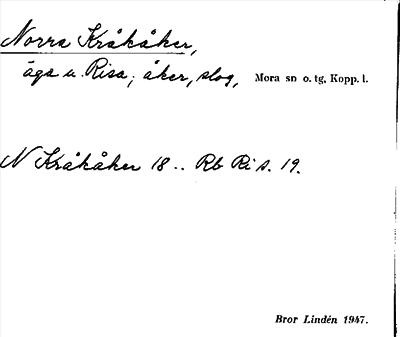 Norra Kråkåker,
ägo u. Risa; åker, slog, Mora sn o. tg, Kopp. l.
N Kråkåker 18.. Rb Ri s. 19.
Bror Lindén 1947.